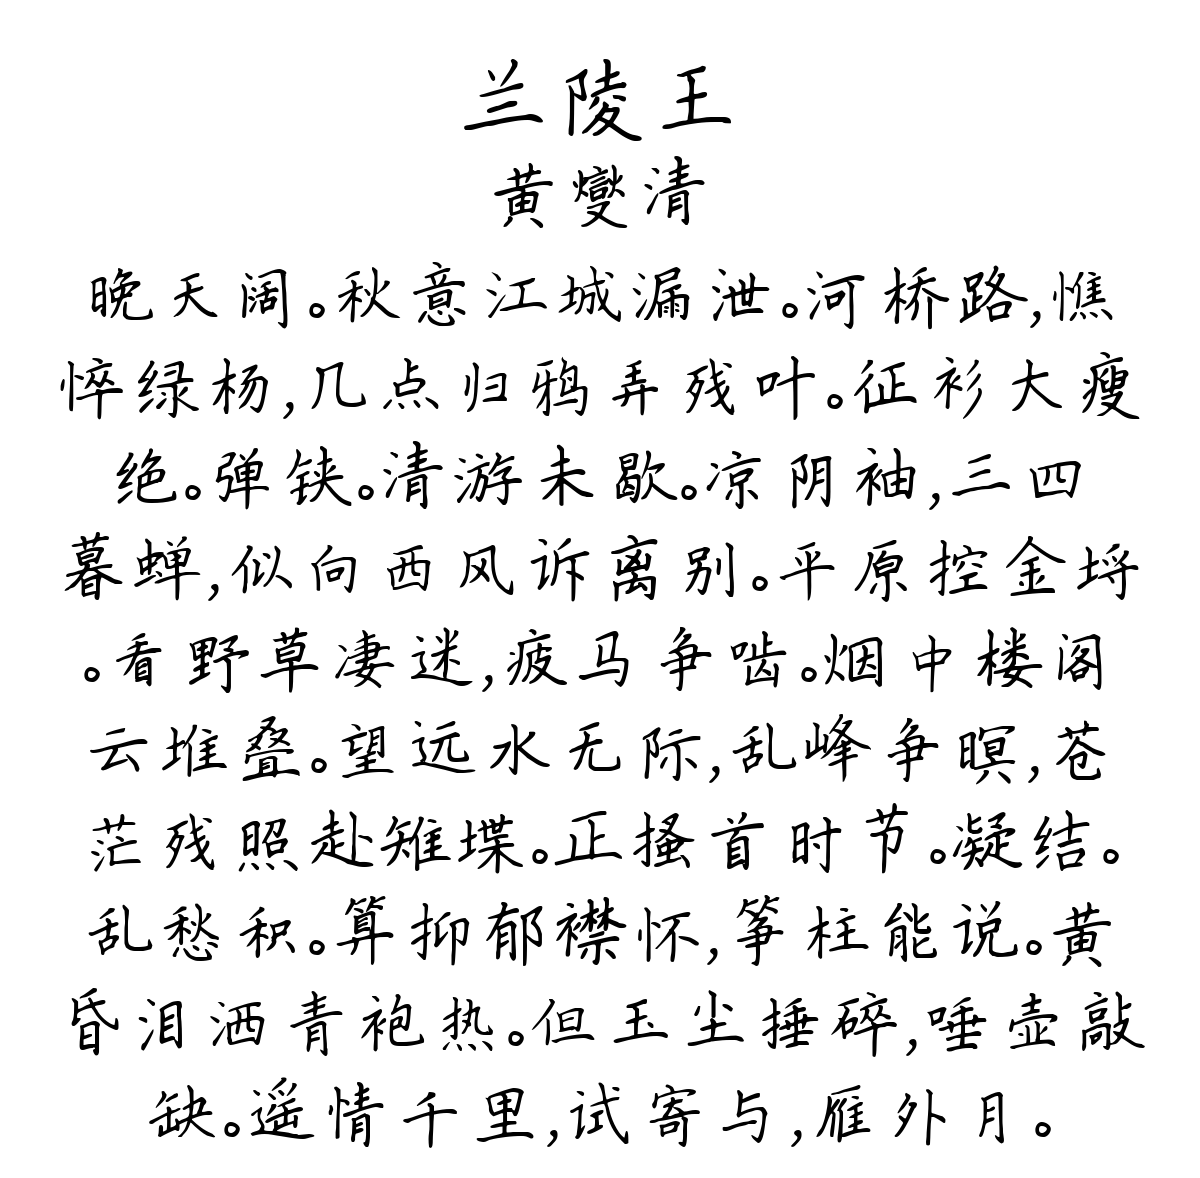 兰陵王
黄燮清
晚天阔。秋意江城漏泄。河桥路,憔
悴绿杨,几点归鸦弄残叶。征衫大瘦
绝。弹铗。清游未歇。凉阴袖,三四
暮蝉,似向西风诉离别。平原控金埒
。看野草凄迷,疲马争啮。烟中楼阁
云堆叠。望远水无际,乱峰争暝,苍
茫残照赴雉堞。正搔首时节。凝结。
乱愁积。算抑郁襟怀,筝柱能说。黄
昏泪洒青袍热。但玉尘捶碎,唾壶敲
缺。遥情千里,试寄与,雁外月。